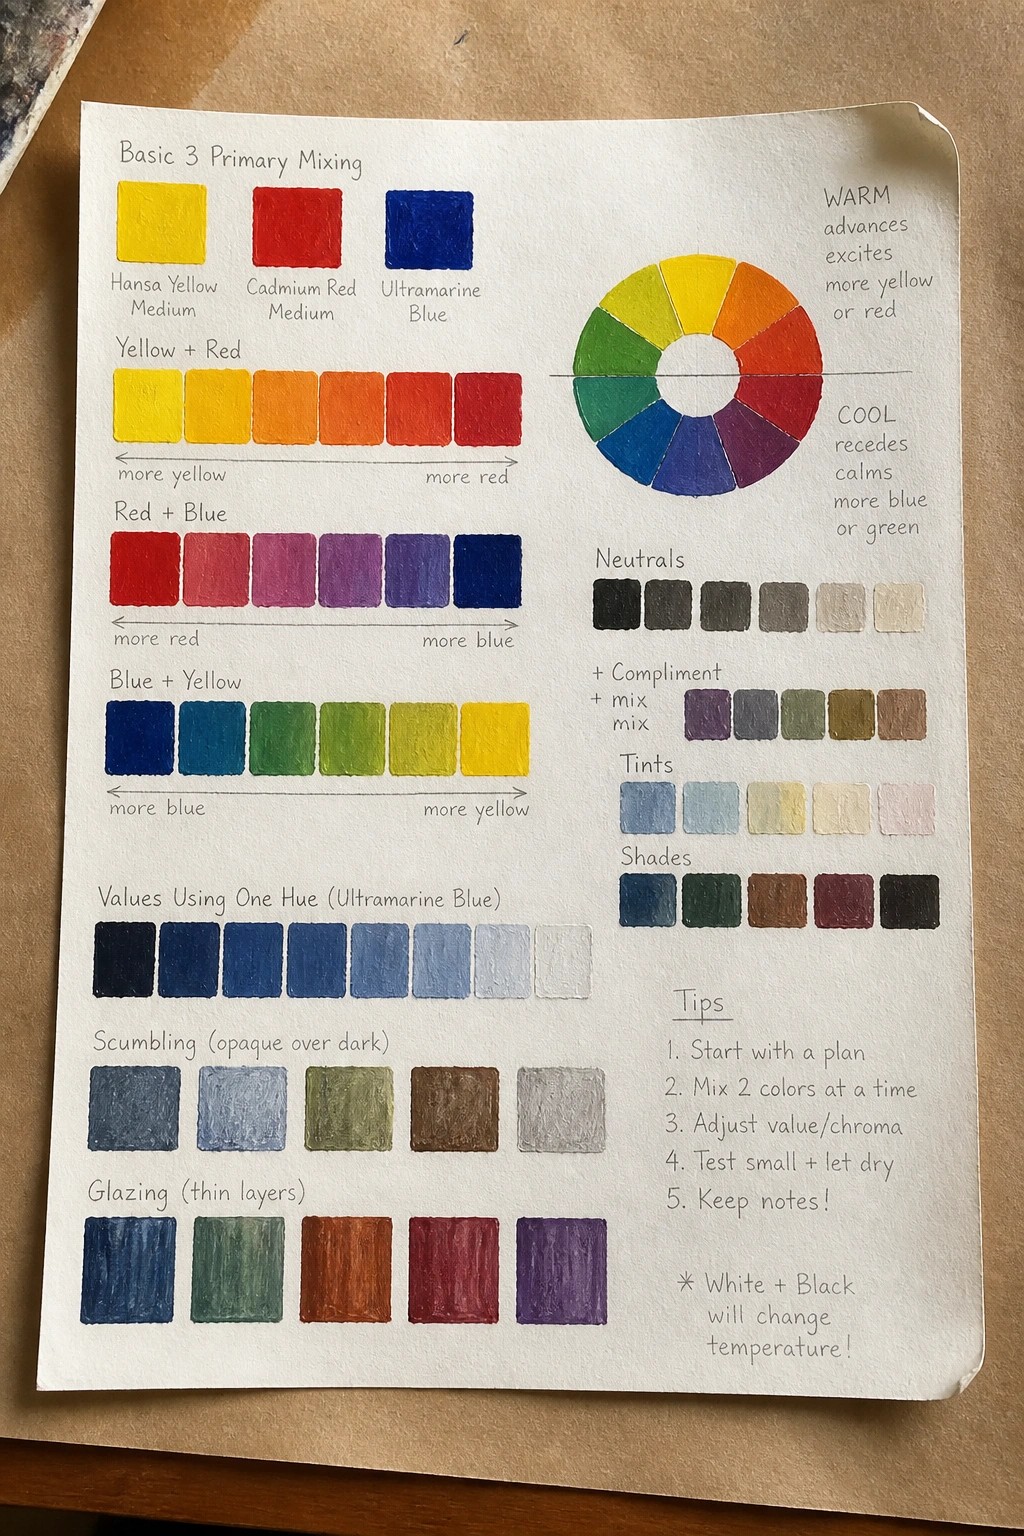 Basic 3 Primary Mixing
Hansa Yellow
Medium
Cadmium Red
Medium
Ultramarine
Blue
Yellow + Red
more yellow
more red
Red + Blue
more red
more blue
Blue + Yellow
more blue
more yellow
Values Using One Hue (Ultramarine Blue)
Scumbling (opaque over dark)
Glazing (thin layers)
WARM
advances
excites
more yellow
or red
COOL
recedes
calms
more blue
or green
Neutrals
+ Compliment
+ mix
mix
Tints
Shades
Tips
1. Start with a plan
2. Mix 2 colors at a time
3. Adjust value/chroma
4. Test small + let dry
5. Keep notes!
* White + Black
will change
temperature!